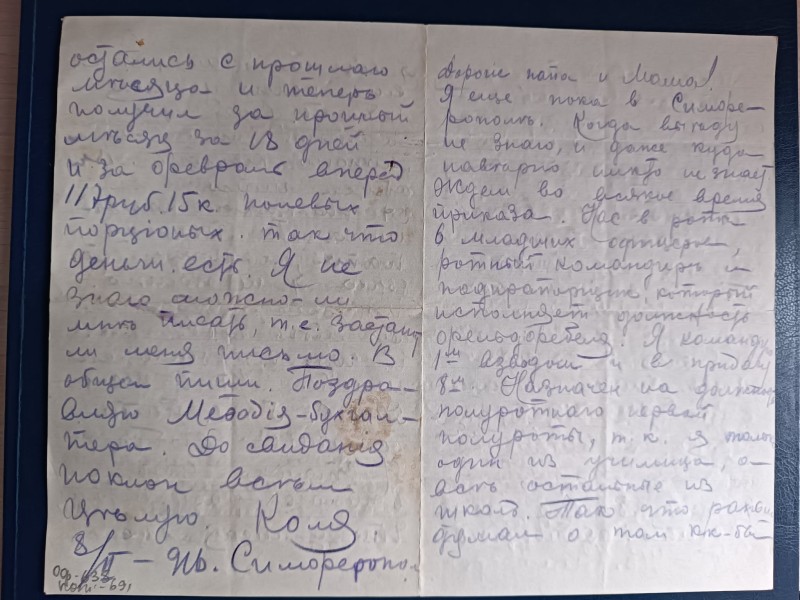 остались с прошлаго
мѣсяца и теперь
получил за прошлый
мѣсяц за 18 дней
и за февраль вперед
117 руб. 15 к. полевых
порціоных. так что
деньги есть. Я не
знаю можно-ли
мнѣ писать, т.е. застанут
ли меня письмо. В
общем пиши. Поздра-
вляю Мефодія-бухгал-
тера. До свиданія
поклон всѣм
Цѣлую. Коля.
8/II - 916. Симферопол
Дорогие папа и Мама!
Я еще пока в Симфе-
рополѣ. Когда выѣду
не знаю, и даже куда
навѣрно никто не знает
Ждем во всякое время
приказа. Нас в ротѣ
6 младших офицеров,
ротный командир и
подпрапорщик, который
исполняет должность
фельдфебеля. Я команд
1ым взводом и в придачу
8ым. Назначен на должн
полуротнаго первой
полуроты, т.к. я только
один из училища, а
всѣ остальные из
школ. Так что
думал о том как-бы